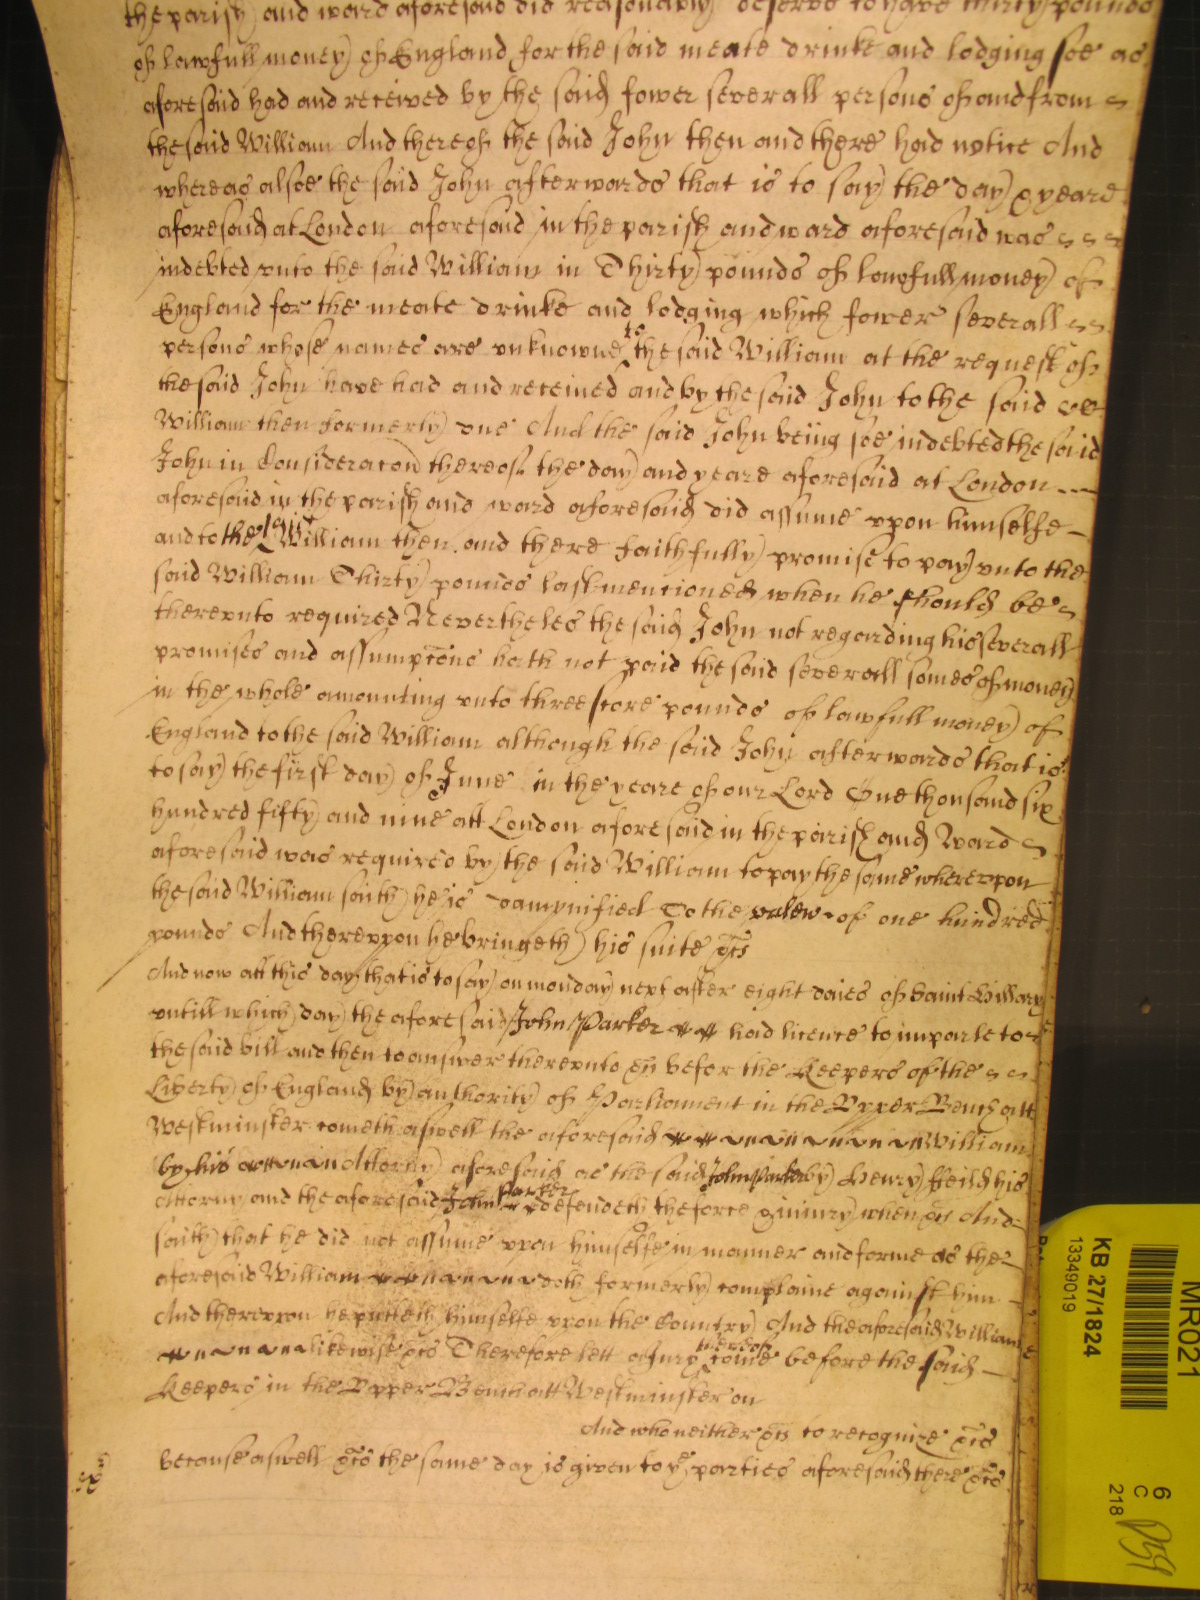 the parish and ward aforesaid did reasonably deserve to have thirty pounds
of lawfull money of England for the said meate drinke and lodging soe as
aforesaid had and received by the said fower severall persons of and from
the said William And thereof the said John then and there had notice And
whereas alsoe the said John afterwards that is to say the day & yeare
aforesaid at London aforesaid in the parish and ward aforesaid was
indebted unto the said William in Thirty pounds of lawfull money of
England for the meate drinke and lodging which fower severall
persons whose names are unknowne to the said William at the request of
the said John have had and received and by the said John to the said
William then formerly due And the said John being soe indebted the said
John in Consideracon thereof the day and yeare aforesaid at London
aforesaid in the parish and ward aforesaid did assume upon himselfe
and to the said William then and there faithfully promise to pay unto the
said William Thirty pounds last mencioned when he should be
thereunto required Neverthelès the said John not regarding his severall
promises and assumpcons hath not paid the said severall somes of money
in the whole amounting unto threescore pounds of lawfull money of
England to the said William although the said John afterwards that is
to say the first day of June in the yeare of our Lord One thousand six
hundred fifty and nine att London aforesaid in the parish and Ward
aforesaid was required by the said William to pay the same whereupon
the said William saith he is damnified To the valew of one hundred
pounds And thereupon he bringeth his suite &cs
And now att this day that is to say on monday next after eight daies of Saint Hillary
untill which day the aforesaid John Parker had licence to imparle to
the said bill and then to answer thereunto &c before the Keepers of the
Liberty of England by authority of Parliament in the Upper Bench att
Westminster cometh aswell the aforesaid William
by his Attorny aforesaid as the said John Parker by Henry ffeild his
Attorny and the aforesaid John Parker defendeth the force & iniury when &cs And
saith that he did not assume upon himselfe in manner and forme as the
aforesaid William doth formerly complaine against him
And thereupon he putteth himselfe upon the Country And the aforesaid William
likewise &cs Therefore lett a Jury thereof come before the said
Keepers in the Upper Bench att Westminster on
And who neither &cs to recognize &cs
because aswell &cs the same day is given to ye parties aforesaid there &cs
MR021
KB 27/1824
13349019
6
C
218